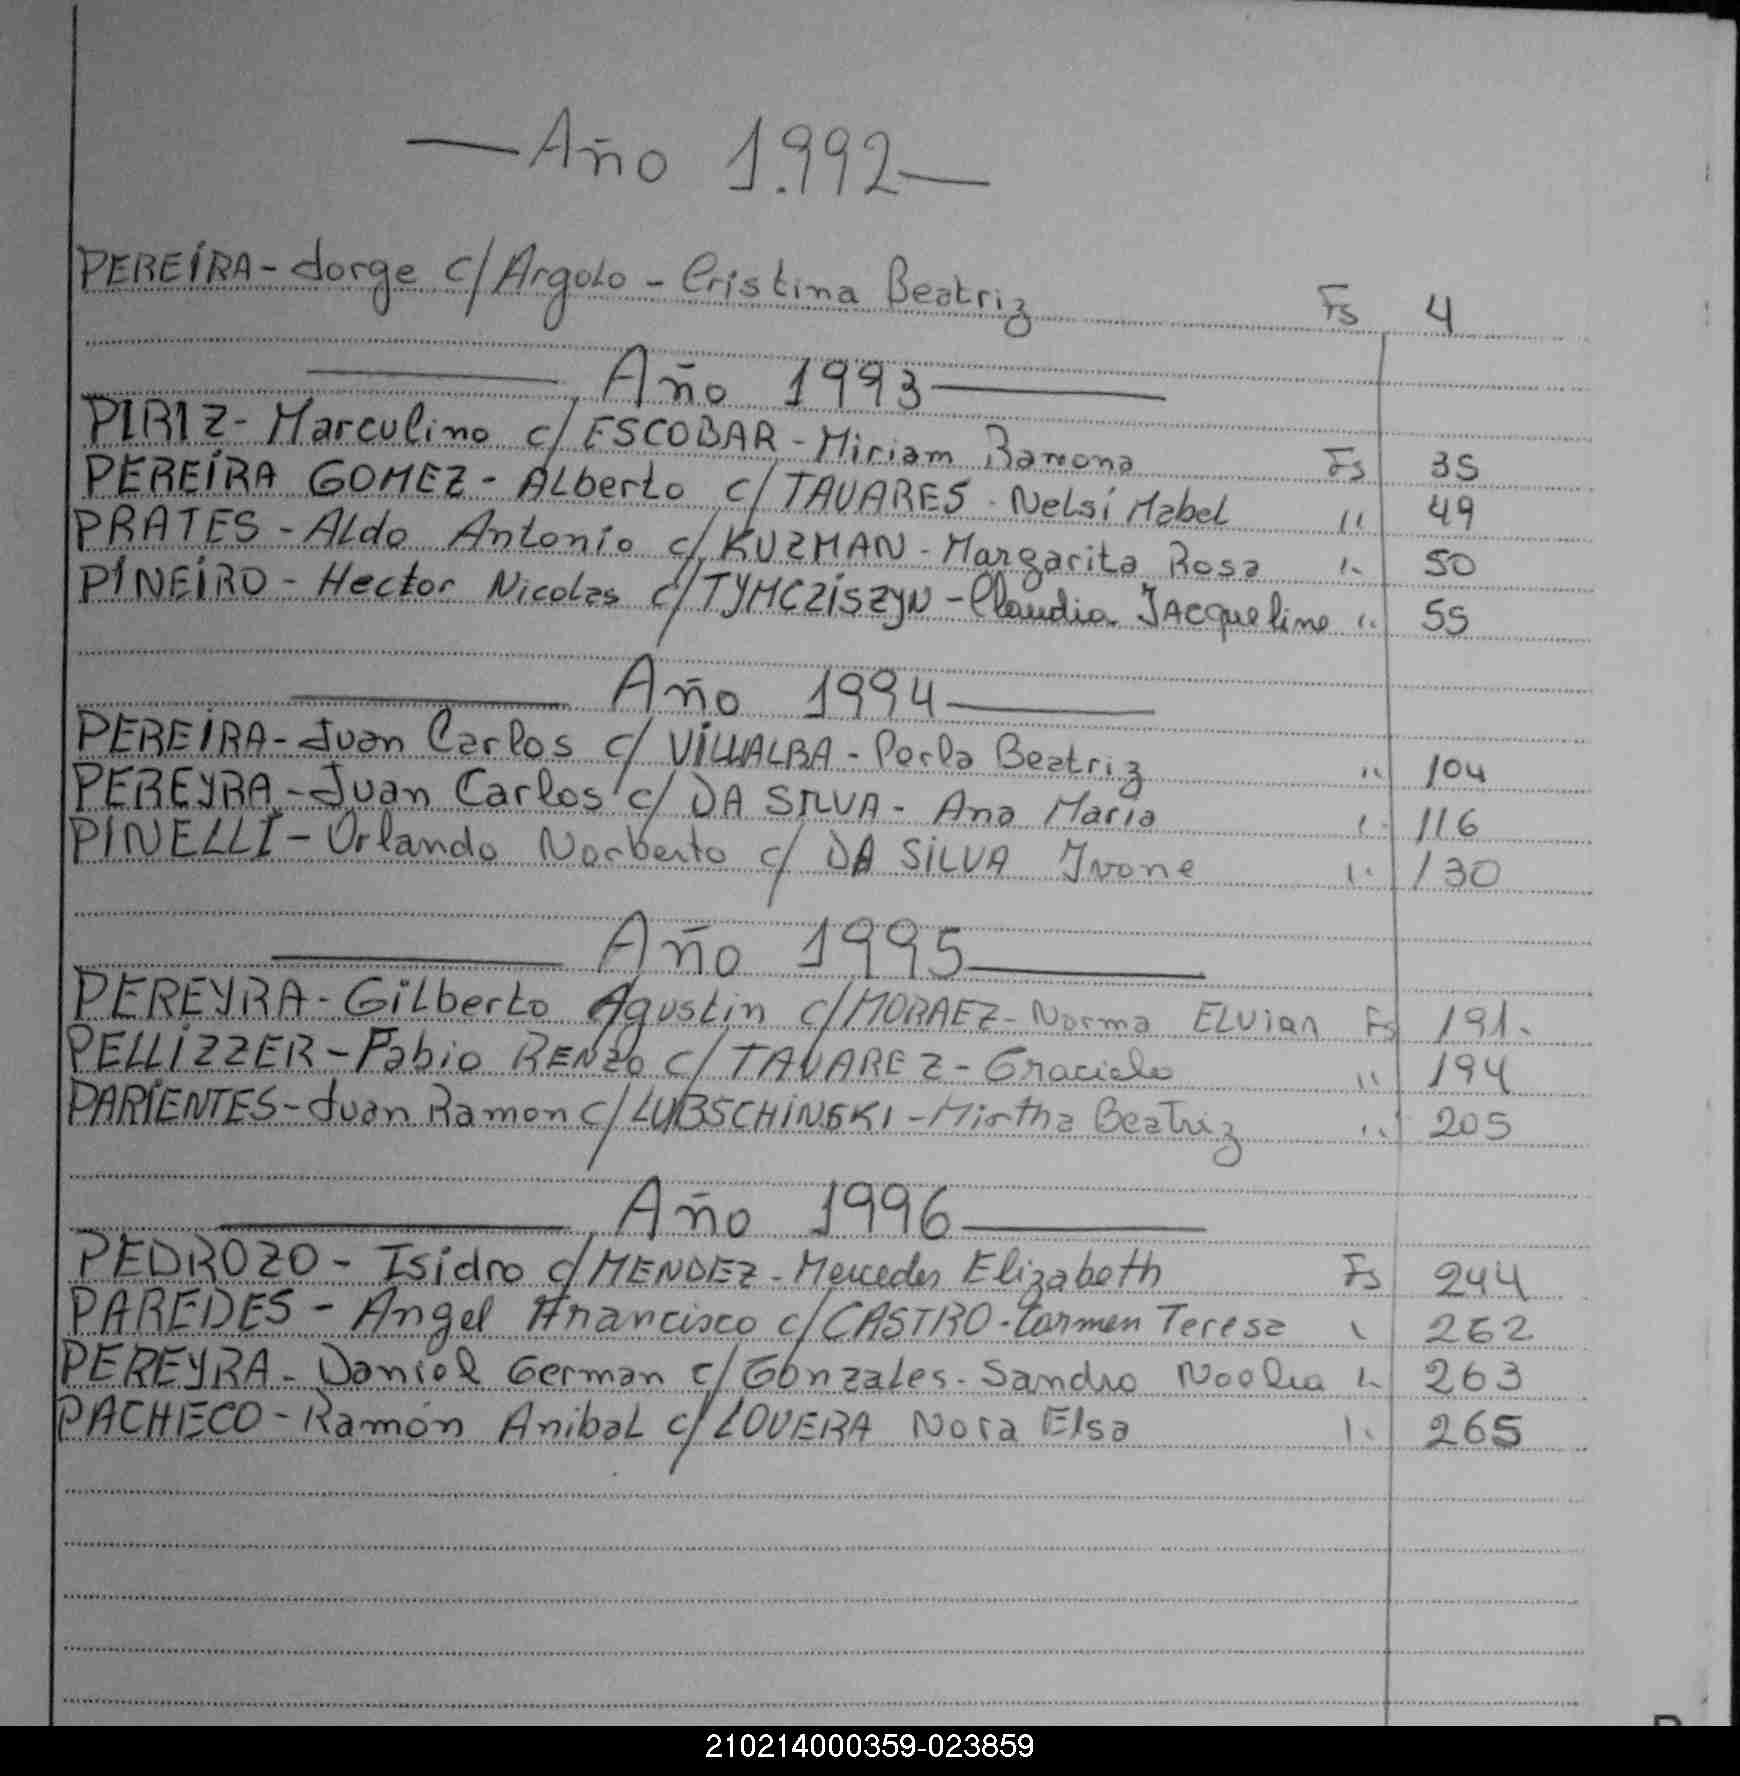 — Año 1.992 —
PEREIRA - Jorge c/ Argolo - Cristina Beatriz Fs 4
Año 1993
PIRIZ - Marculino c/ ESCOBAR - Miriam Ramona Fs 35
PEREIRA GOMEZ - Alberto c/ TAVARES - Nelsi Mabel " 49
PRATES - Aldo Antonio c/ KUZMAN - Margarita Rosa " 50
PINEIRO - Hector Nicolas c/ TYMCZISZYN - Claudia JAcqueline " 55
Año 1994
PEREIRA - Juan Carlos c/ VILLALBA - Perla Beatriz " 104
PEREYRA - Juan Carlos c/ DA SILVA - Ana Maria " 116
PINELLI - Orlando Norberto c/ DA SILVA Ivone " 130
Año 1995
PEREYRA - Gilberto Agustin c/ MORAEZ - Norma ELVian Fs 191.
PELLIZZER - Fabio RENZo c/ TAVAREZ - Graciela " 194
PARIENTES - Juan Ramon c/ LUBSCHINSKI - Mirtha Beatriz " 205
Año 1996
PEDROZO - Isidro c/ MENDEZ - Mercedes Elizabeth Fs 244
PAREDES - Angel Francisco c/ CASTRO - Carmen Teresa " 262
PEREYRA - Daniel German c/ Gonzales - Sandra Noelia " 263
PACHECO - Ramón Anibal c/ LOVERA Nora Elsa " 265
210214000359-023859